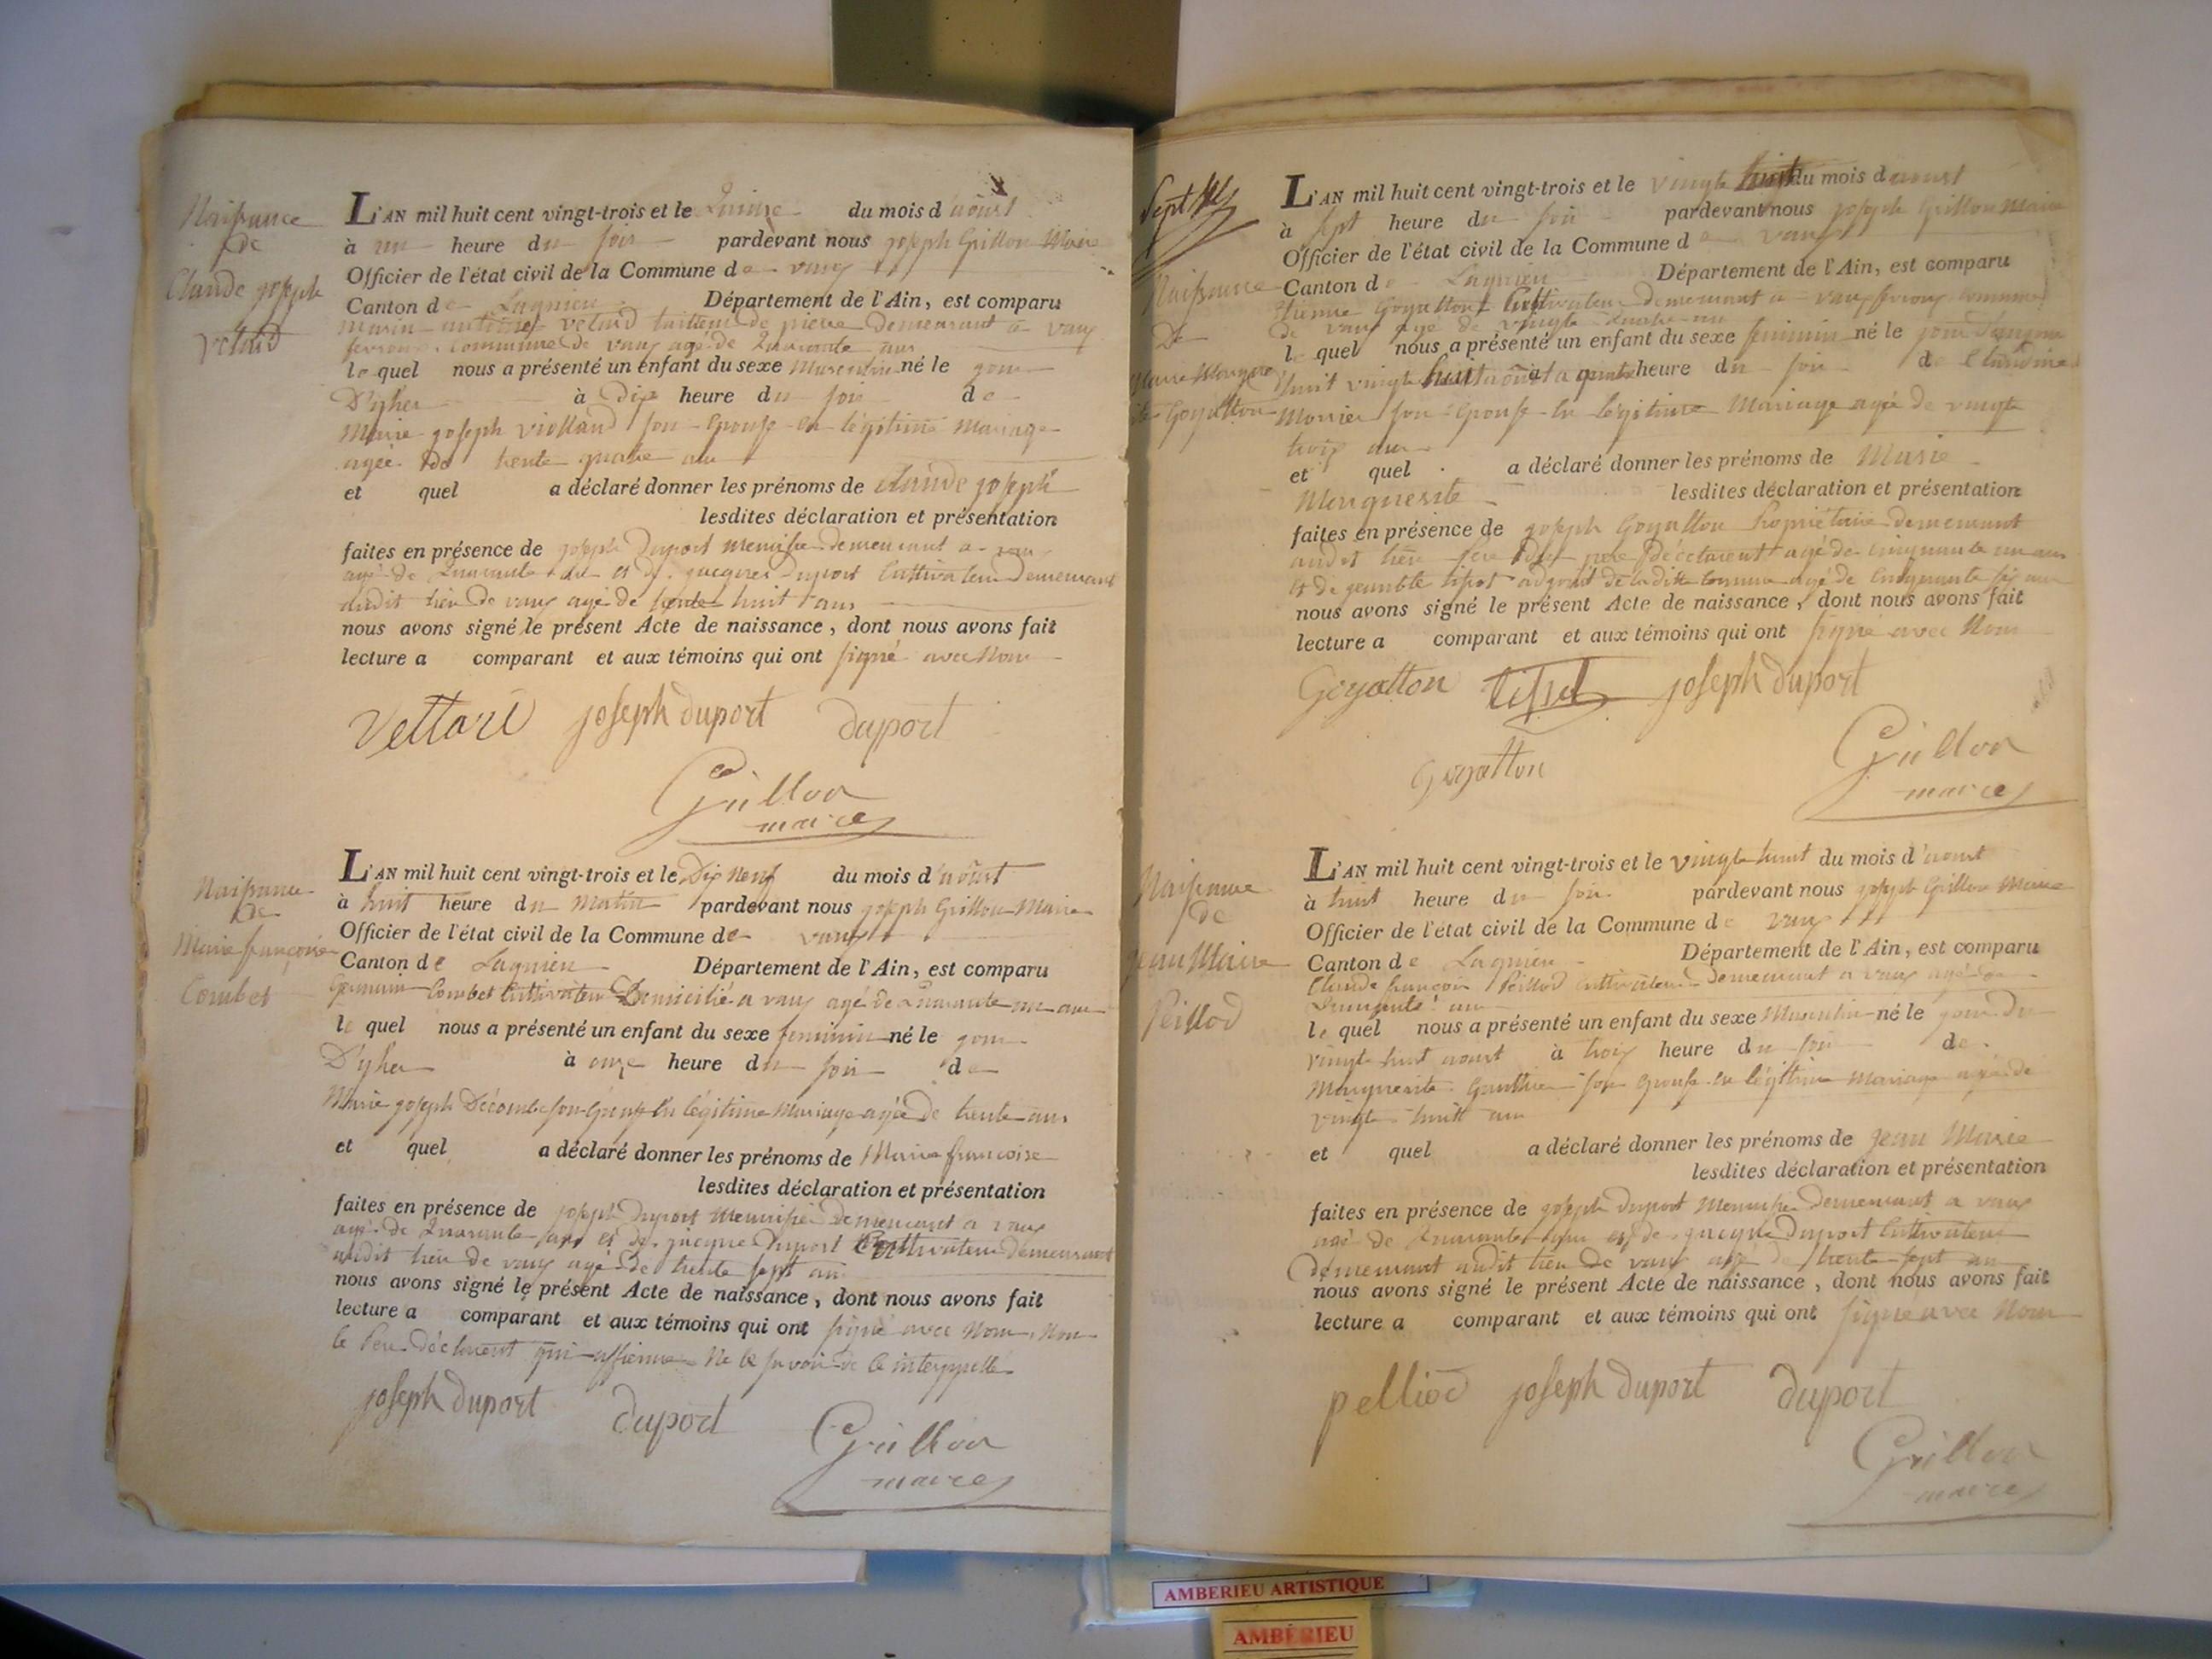 Naissance
de
Claude joseph
Vetard
L'AN mil huit cent vingt-trois et le Quinze du mois d'aoust
à un heure du soir pardevant nous joseph Grillon Maire
Officier de l'état civil de la Commune de vaux
Canton de Lagnieu Département de l'Ain, est comparu
marin antoine vetard tailleur de pierre demeurant a vaux
fevroux commune de vaux agé de Quarante ans
le quel nous a présenté un enfant du sexe Masculin né le jour
D'yher à Dix heure du soir de
Marie joseph violland son Epouse en légitime Mariage
agée de trente quatre ans
et quel a déclaré donner les prénoms de claude joseph
lesdites déclaration et présentation
faites en présence de joseph Duport menuisier demeurant a vaux
agé de Quarante ans et de jacques Duport Cultivateur Demeurant
audit lieu de vaux agé de trente huit ans
nous avons signé le présent Acte de naissance, dont nous avons fait
lecture a comparant et aux témoins qui ont signé avec Nous
Vettard joseph duport duport
Grillon
maire
Naissance
de
Marie françoise
Combet
L'AN mil huit cent vingt-trois et le Dix neuf du mois d'aoust
à huit heure du Matin pardevant nous joseph Grillon Maire
Officier de l'état civil de la Commune de vaux
Canton de Lagnieu Département de l'Ain, est comparu
Germain Combet Cultivateur Domicilié a vaux agé de Quarante un ans
le quel nous a présenté un enfant du sexe feminin né le jour
D'yher à onze heure du soir de
Marie joseph Décombe son Epouse En légitime Mariage agée de trente ans
et quel a déclaré donner les prénoms de Marie francoise
lesdites déclaration et présentation
faites en présence de joseph Duport Menuisier Demeurant a vaux
agé de Quarante ans et de jacque Duport Cultivateur demeurant
audit lieu de vaux agé de trente sept ans
nous avons signé le présent Acte de naissance, dont nous avons fait
lecture a comparant et aux témoins qui ont signé avec Nous, Non
le Peu déclarent qui affirme Ne le savoir de ce interppellé
joseph duport duport Grillon
maire
Sept
Naissance
De
Marie Marguerite
Goyatton
L'AN mil huit cent vingt-trois et le vingte huit du mois d'aoust
à sept heure du soir pardevant nous joseph Grillon Maire
Officier de l'état civil de la Commune de vaux
Canton de Lagnieu Département de l'Ain, est comparu
Etienne Goyatton Cultivateur demeurant a vaux fevroux commune
de vaux agé de vingte Quatre ans
le quel nous a présenté un enfant du sexe feminin né le jour d'aujour
d'huit vingte huit aoust a quatre heure du soir de Claudine
Monier son Epouse en légitime Mariage agée de vingte
trois ans
et quel a déclaré donner les prénoms de Marie
Marguerite lesdites déclaration et présentation
faites en présence de joseph Goyatton Propriétaire demeurant
audit lieu pere du déclarent agé de Cinquante un ans
Et de tissot adjoint de ladite commune agé de Cinquante six ans
nous avons signé le présent Acte de naissance, dont nous avons fait
lecture a comparant et aux témoins qui ont signé avec Nous
Goyatton tissot joseph duport
goyatton Grillon
maire
Naissance
de
jean Marie
Peillod
L'AN mil huit cent vingt-trois et le vingte huit du mois d'aoust
à huit heure du soir pardevant nous joseph Grillon Maire
Officier de l'état civil de la Commune de vaux
Canton de Lagnieu Département de l'Ain, est comparu
Claude françois Peillod cultivateur demeurant a vaux agé de
Quarante ans
le quel nous a présenté un enfant du sexe Masculin né le jour du
vingte huit aoust à trois heure du soir de
Marguerite Gauthier son Epouse en légitime Mariage agée de
vingte huit ans
et quel a déclaré donner les prénoms de jean Marie
lesdites déclaration et présentation
faites en présence de joseph Duport Menuisier demeurant a vaux
agé de Quarante ans et de jacque Duport Cultivateur
Demeurant audit lieu de vaux agé de trente sept ans
nous avons signé le présent Acte de naissance, dont nous avons fait
lecture a comparant et aux témoins qui ont signé avec Nous
pelliod joseph duport duport
Grillon
maire
AMBERIEU ARTISTIQUE
AMBÉRIEU